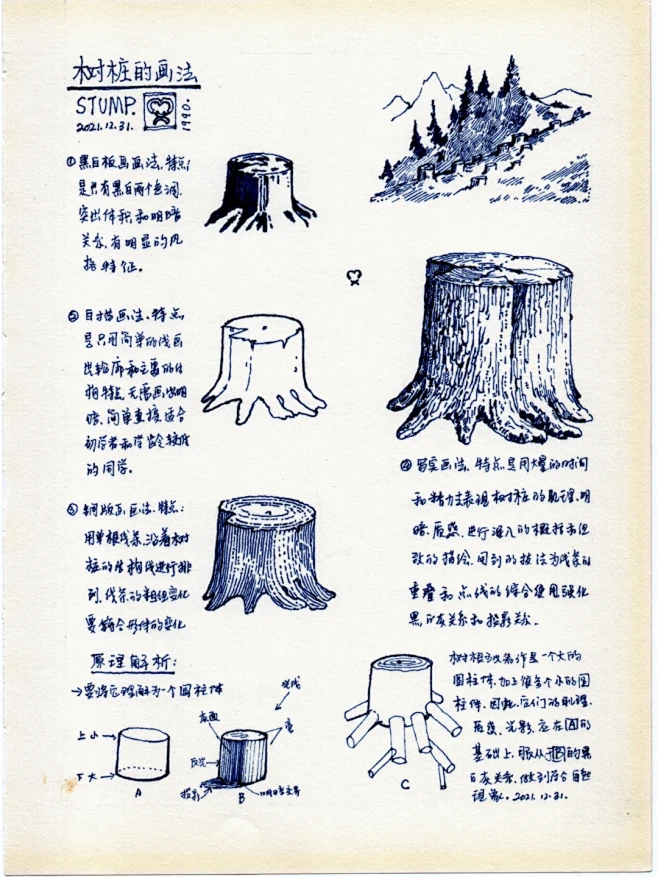 树桩的画法
STUMP.
2021.12.31.
1990.
①黑白板画画法.特点:
是只有黑白两个色调.
突出体积和明暗
关系.有明显的风
格特征。
②白描画法.特点
是只用简单的线画
出轮廓和主要的结
构特点.无需画出明
暗.简单直接适合
初学者和学龄较低
的同学。
③铜版画画法.特点:
用单根线条.沿着树
桩的结构线进行排
列.线条的粗细变化
要符合形体的变化
④写实画法.特点是用大量的时间
和精力去表现树桩的肌理.明
暗.质感.进行深入的概括
的描绘.用到的技法为线条的
重叠和点线的综合使用强化
黑白灰关系和投影关系.
原理解析:
→要将它理解为一个圆柱体
上小→
下大→
A
灰面
反光→
投影
B
明暗交界
亮
C
树根可以看作是一个大的
圆柱体.加上很多个小的圆
柱体.因此.它们的肌理.
质感.光影.应在A的
基础上.服从B的黑
白灰关系.做到符合自然
现象。2021.12.31.